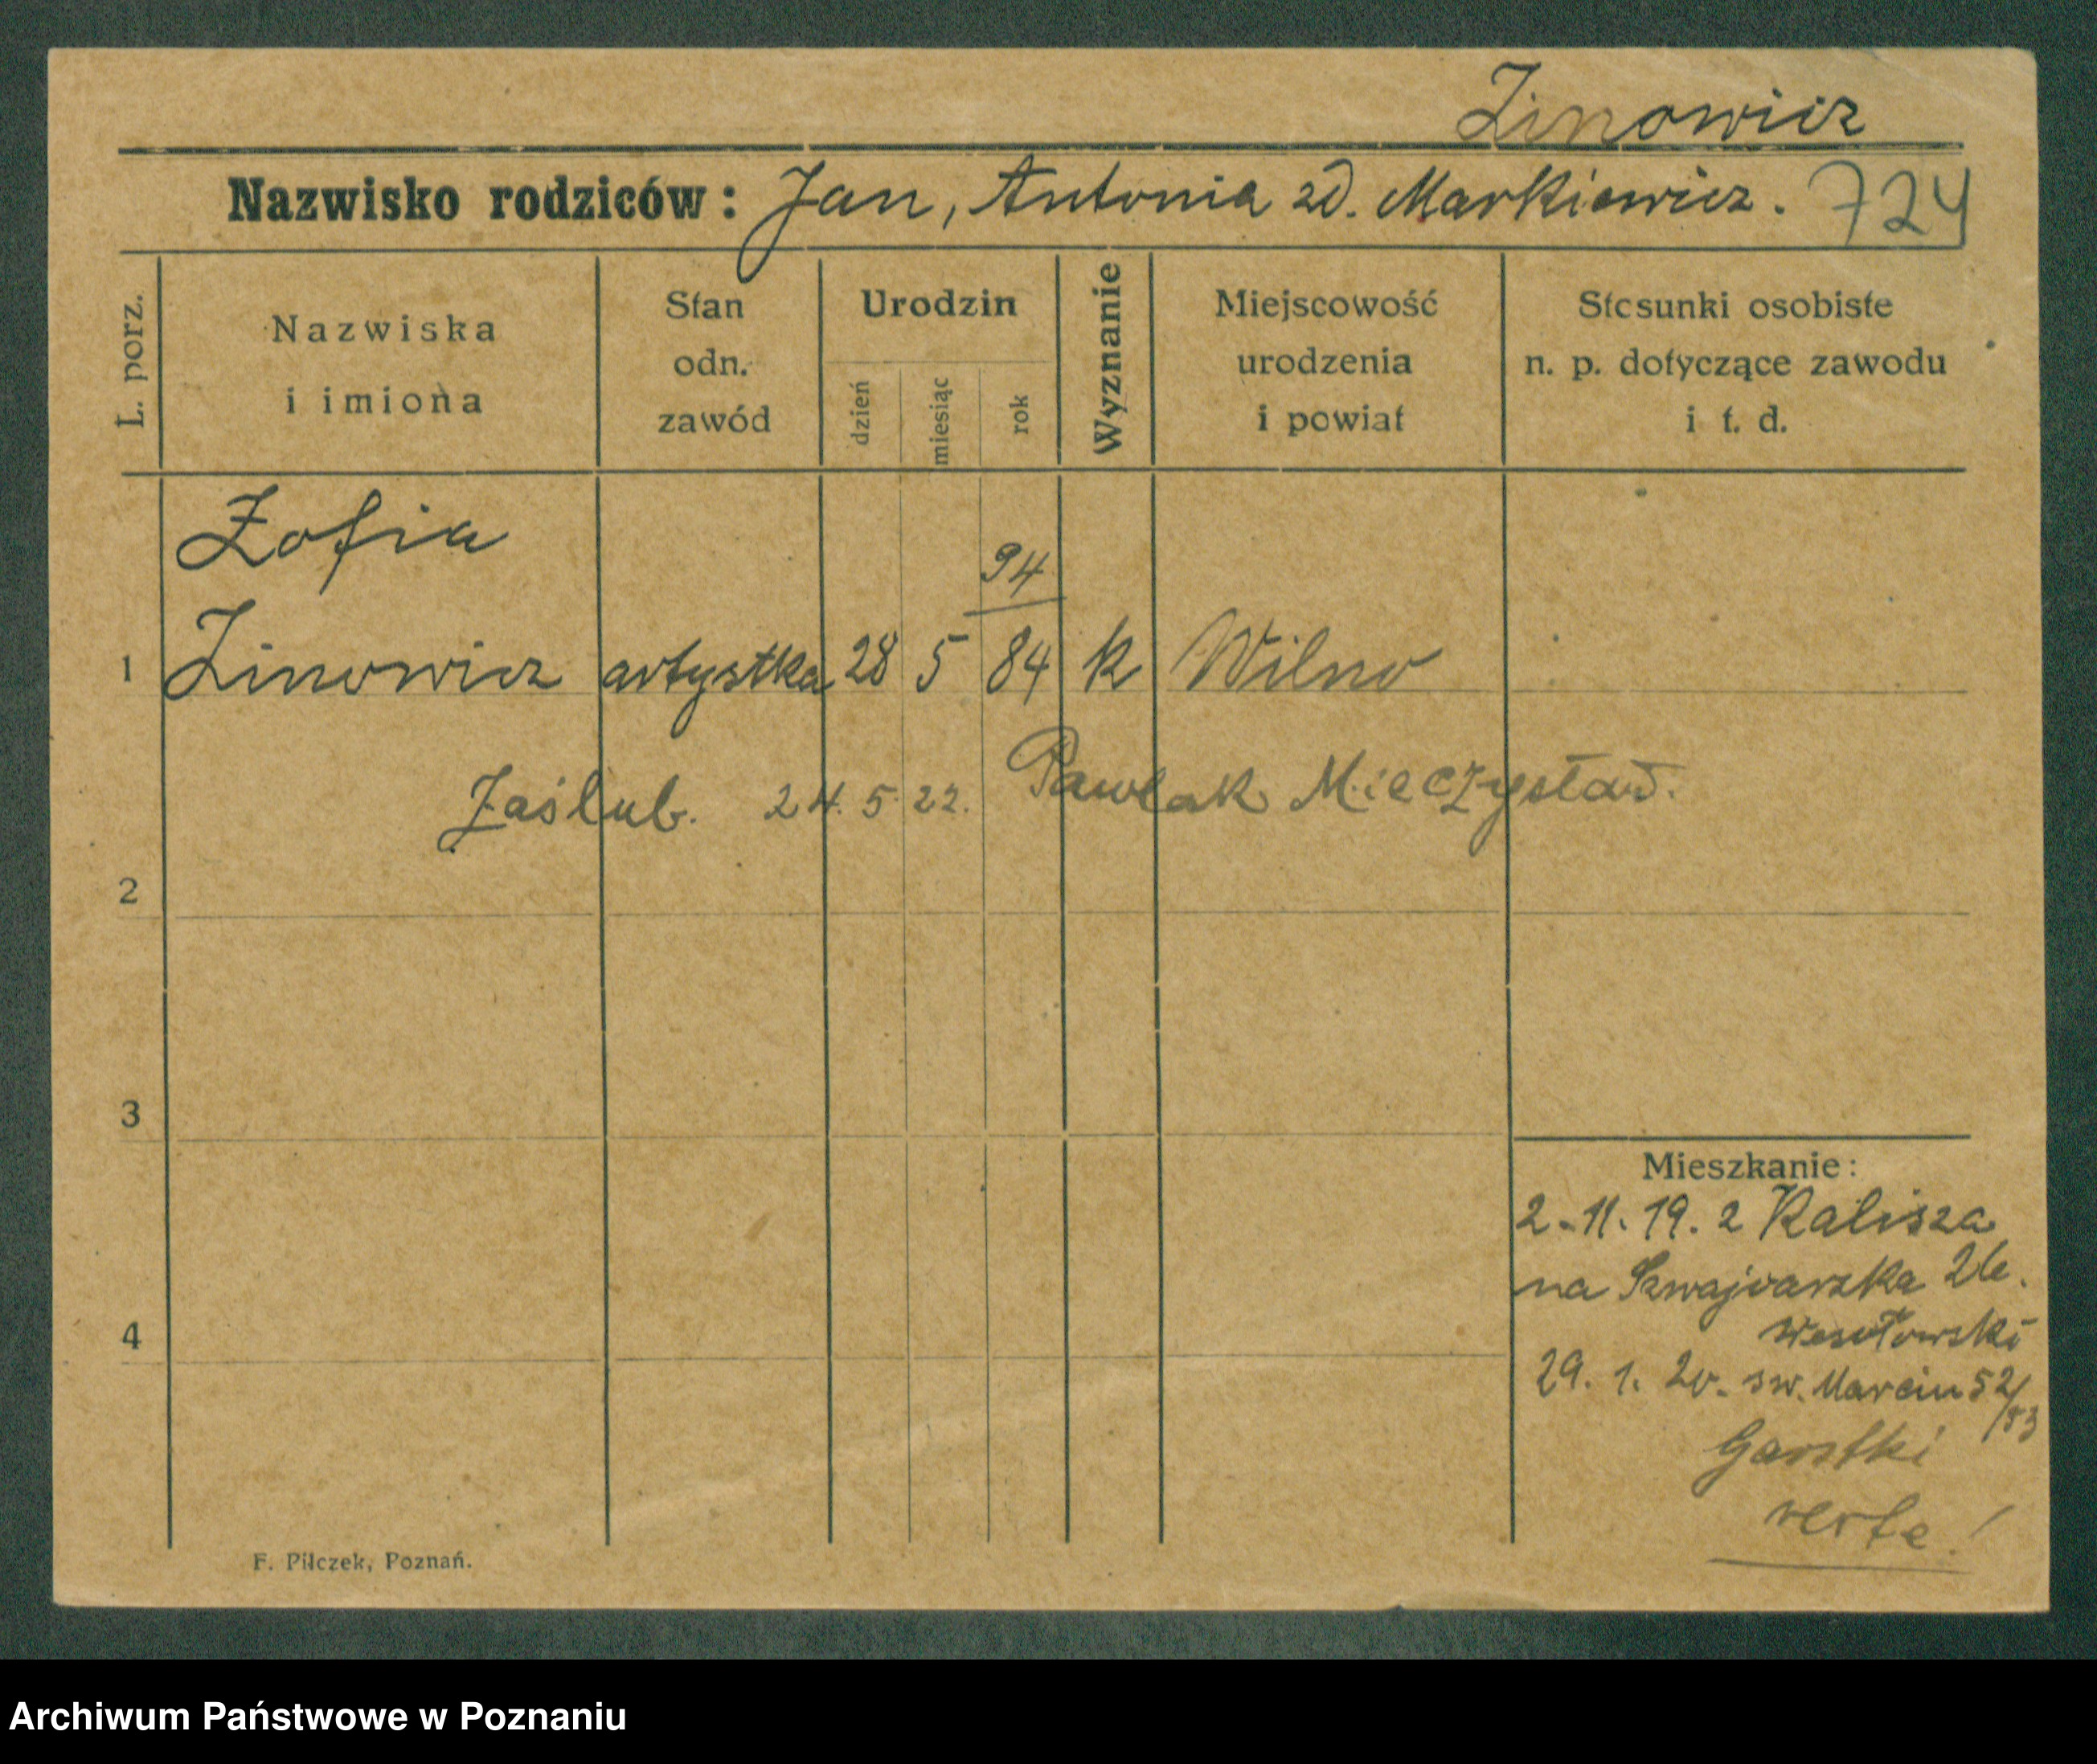 Zinowicz
Nazwisko rodziców: Jan, Antonia zd. Markiewicz. 724
L. porz.
Nazwiska
i imiona
Stan
odn.
zawód
Urodzin
dzień
miesiąc
rok
Wyznanie
Miejscowość
urodzenia
i powiat
Stosunki osobiste
n. p. dotyczące zawodu
i t. d.
Zofia
94
1 Zinowicz artystka 28 5 84 k Wilno
Zaślub. 24. 5. 22. Pawlak Mieczysław.
2
3
4
Mieszkanie:
2.11.19. z Kalisza
na Szwajcarska 26.
Wesołowski
29. 1. 20. św. Marcin 52/53
Garstki
verte!
F. Pilczek, Poznań.
Archiwum Państwowe w Poznaniu